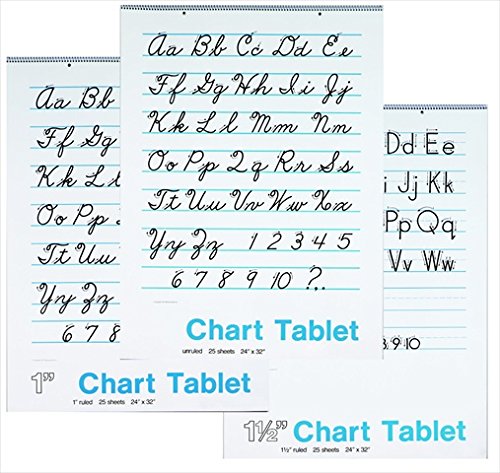 Aa Bb Cc Dd Ee
Ff Gg Hh Ii Jj
Kk Ll Mm Nn
Oo Pp Qq Rr Ss
Tt Uu Vv Ww Xx
Yy Zz 1 2 3 4 5
6 7 8 9 10 ?.
Chart Tablet
unruled 25 sheets 24" x 32"
Aa Bb
Ff Gg
Kk
Oo
Tt
Yy Zz
6 7 8
1" Chart Tablet
1" ruled 25 sheets 24" x 32"
Dd Ee
Ii Jj Kk
Pp Qq
Vv Ww
8 9 10
1½" Chart Tablet
1½" ruled 25 sheets 24" x 32"